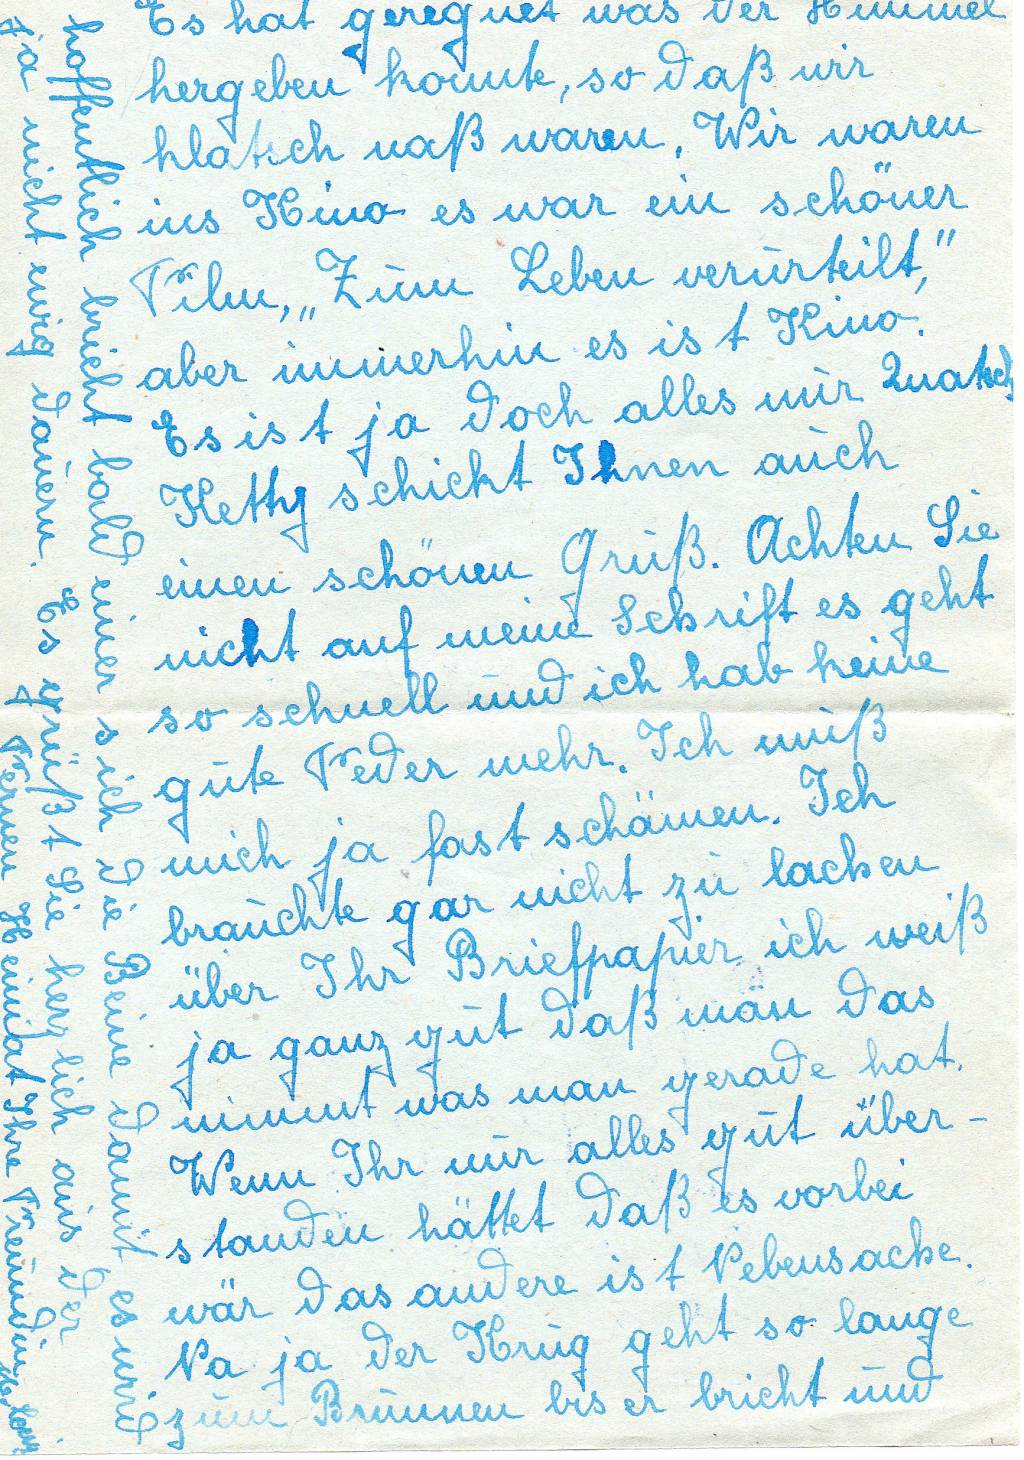 Es hat geregnet was der Himmel
hergeben konnte, so daß wir
klatsch naß waren. Wir waren
ins Kino es war ein schöner
Film, „Zum Leben verurteilt,"
aber immerhin es ist Kino.
Es ist ja doch alles nur Quatsch
Ketty schickt Ihnen auch
einen schönen Gruß. Achten Sie
nicht auf meine Schrift es geht
so schnell und ich hab keine
gute Feder mehr. Ich muß
mich ja fast schämen. Ich
brauchte gar nicht zu lachen
über Ihr Briefpapier, ich weiß
ja ganz gut daß man das
nimmt was man gerade hat.
Wenn Ihr nur alles gut über-
standen hättet daß es vorbei
wär das andere ist Nebensache.
Na ja der Krug geht so lange
zum Brunnen bis er bricht und
hoffentlich bricht bald einer sich die Beine damit es wird
ja nicht ewig dauern. Es grüßt Sie herzlich aus der
Fernen Heimat Ihre Freundin